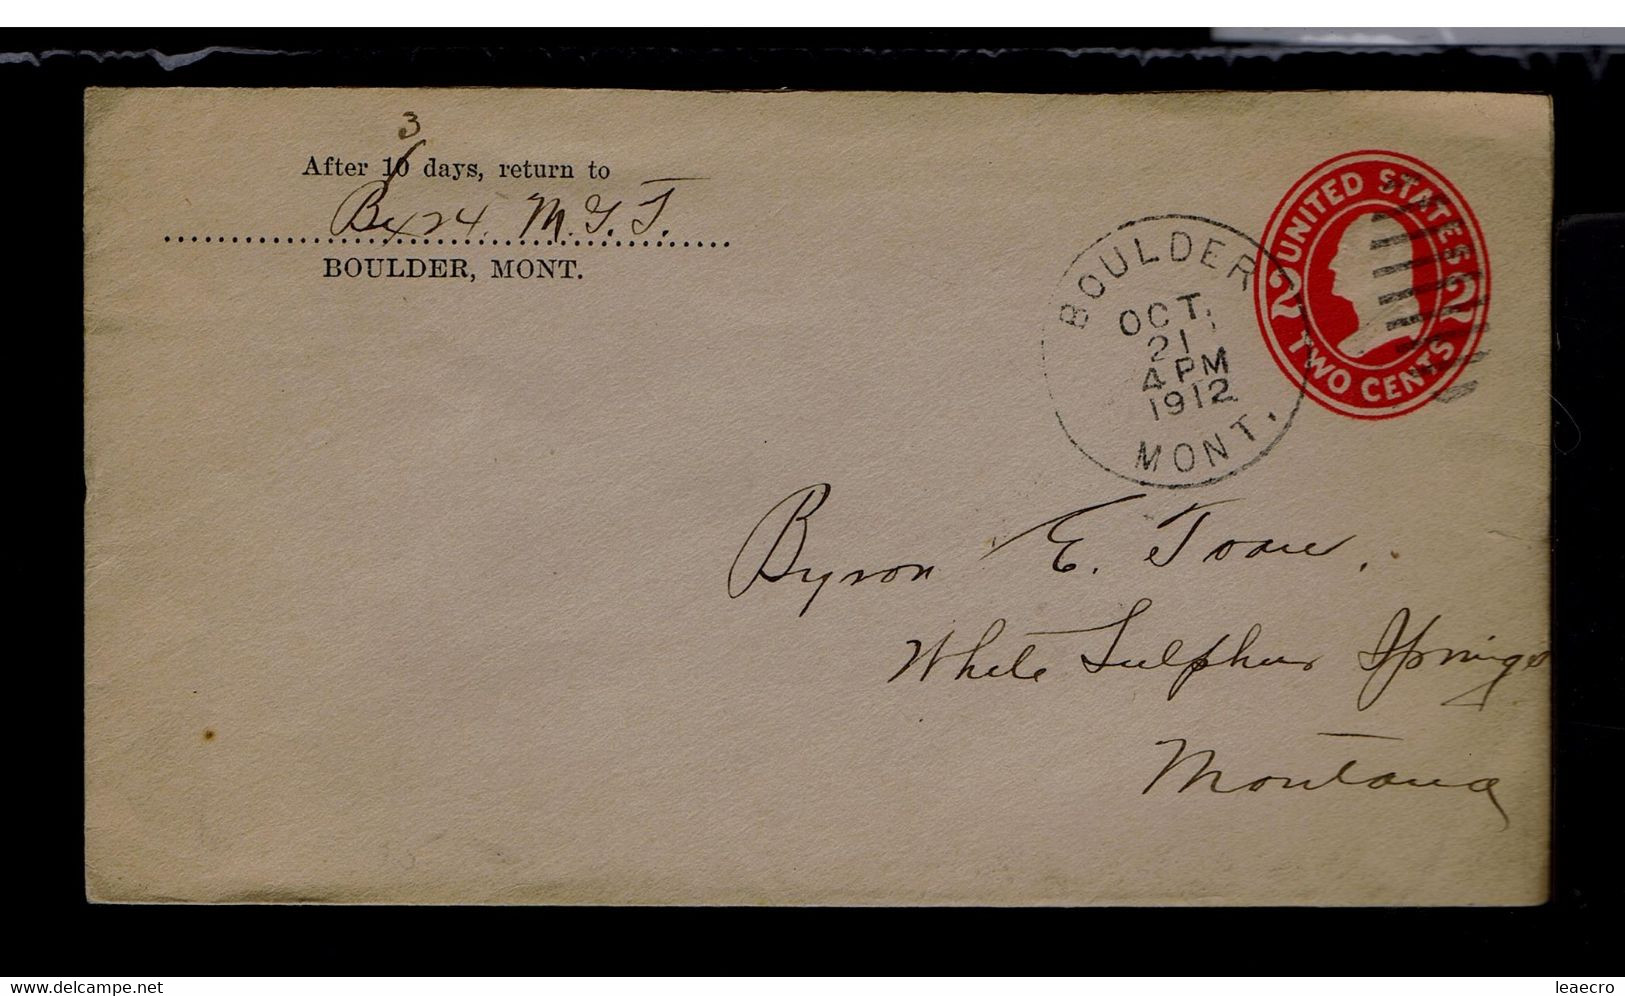 3
After 10 days, return to
Bx 24. M.G.T.
BOULDER, MONT.
BOULDER
OCT.
21
4 PM
1912
MONT.
UNITED STATES
2 2
TWO CENTS
Byron E.
White Sulphur Springs
Montana
delcampe.net
leaecro